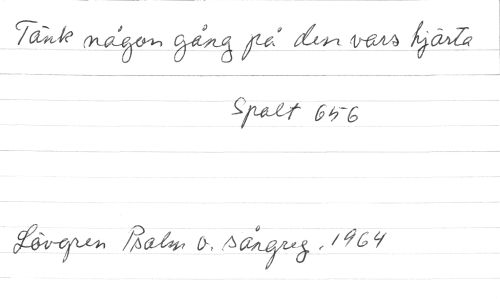 Tänk någon gång på den vars hjärta
Spalt 656
Lövgren Psalm o. sångreg. 1964